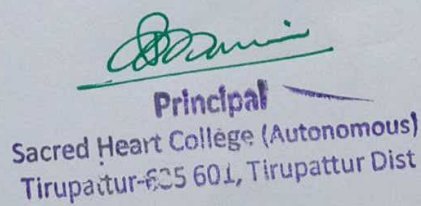 Principal
Sacred Heart College (Autonomous)
Tirupattur-635 601, Tirupattur Dist